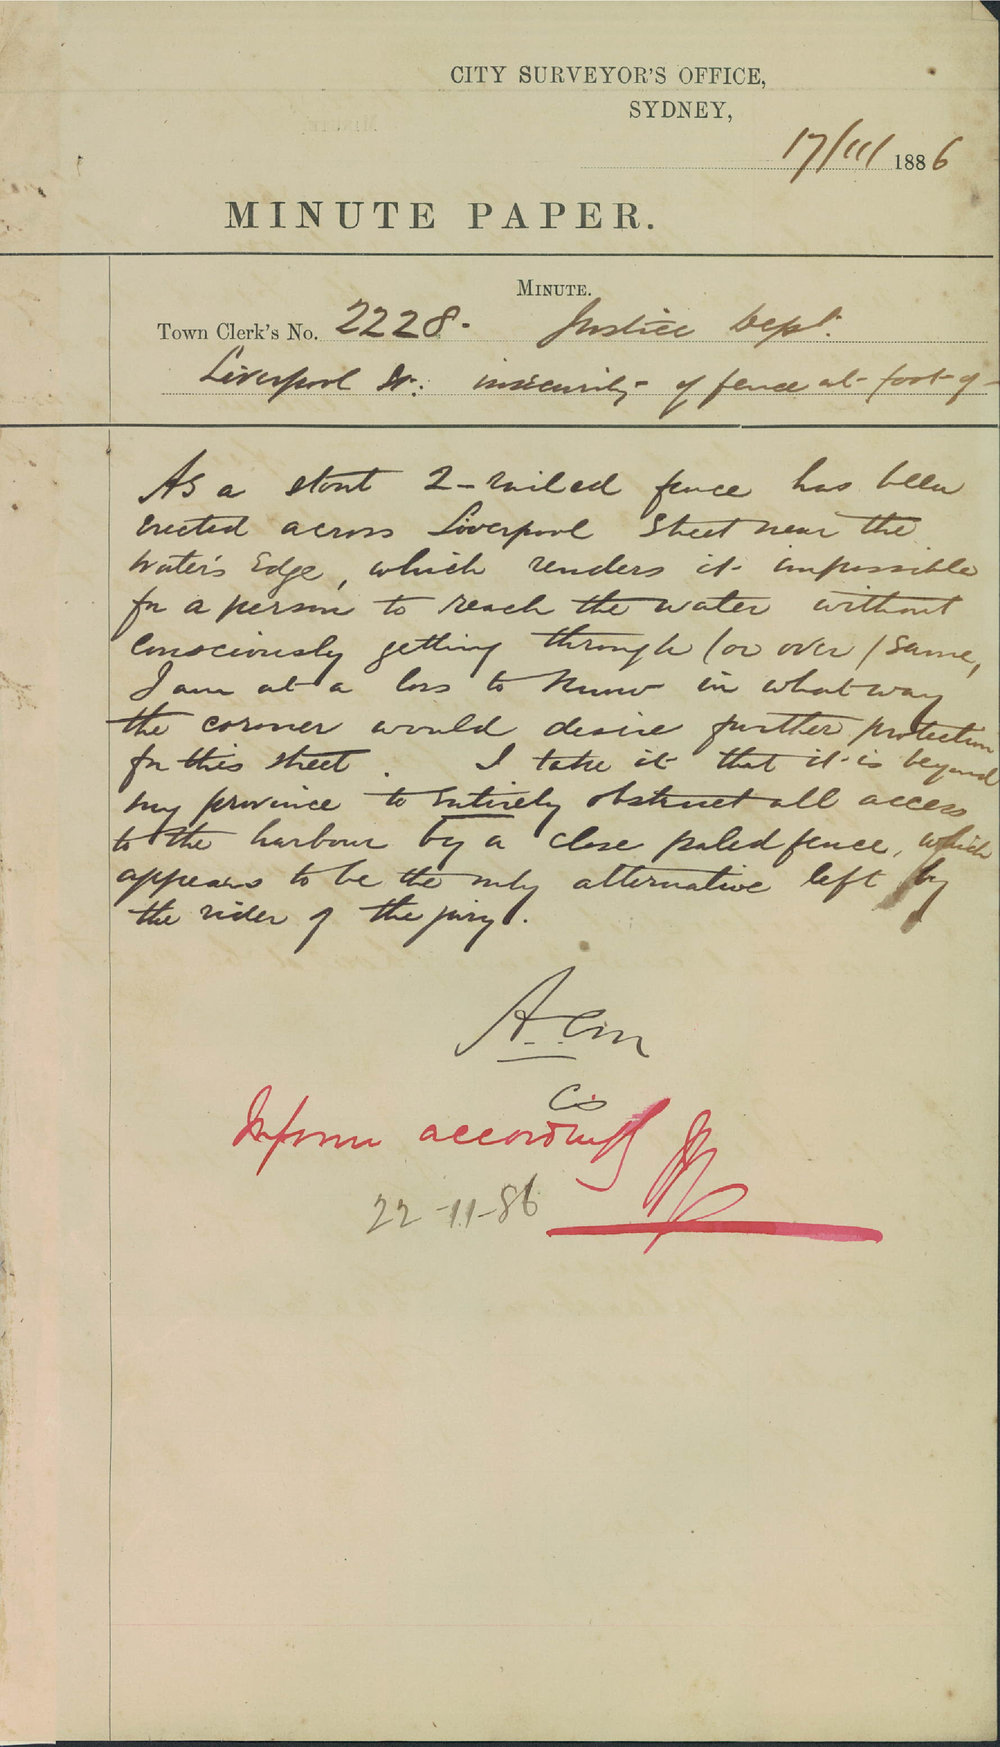 CITY SURVEYOR'S OFFICE,
SYDNEY,
17/11/ 1886
MINUTE PAPER.
MINUTE.
Town Clerk's No. 2228. Justice Dept.
Liverpool St: insecurity of fence at foot of
As a stout 2-railed fence has been
erected across Liverpool Street near the
Water's Edge, which renders it impossible
for a person to reach the water without
consciously getting through (or over) same,
I am at a loss to know in what way
the coroner would desire further protection
for this street. I take it that it is beyond
my province to entirely obstruct all access
to the harbour by a close paled fence, which
appears to be the only alternative left by
the rider of the jury.
CS
Inform accordingly
22-11-86